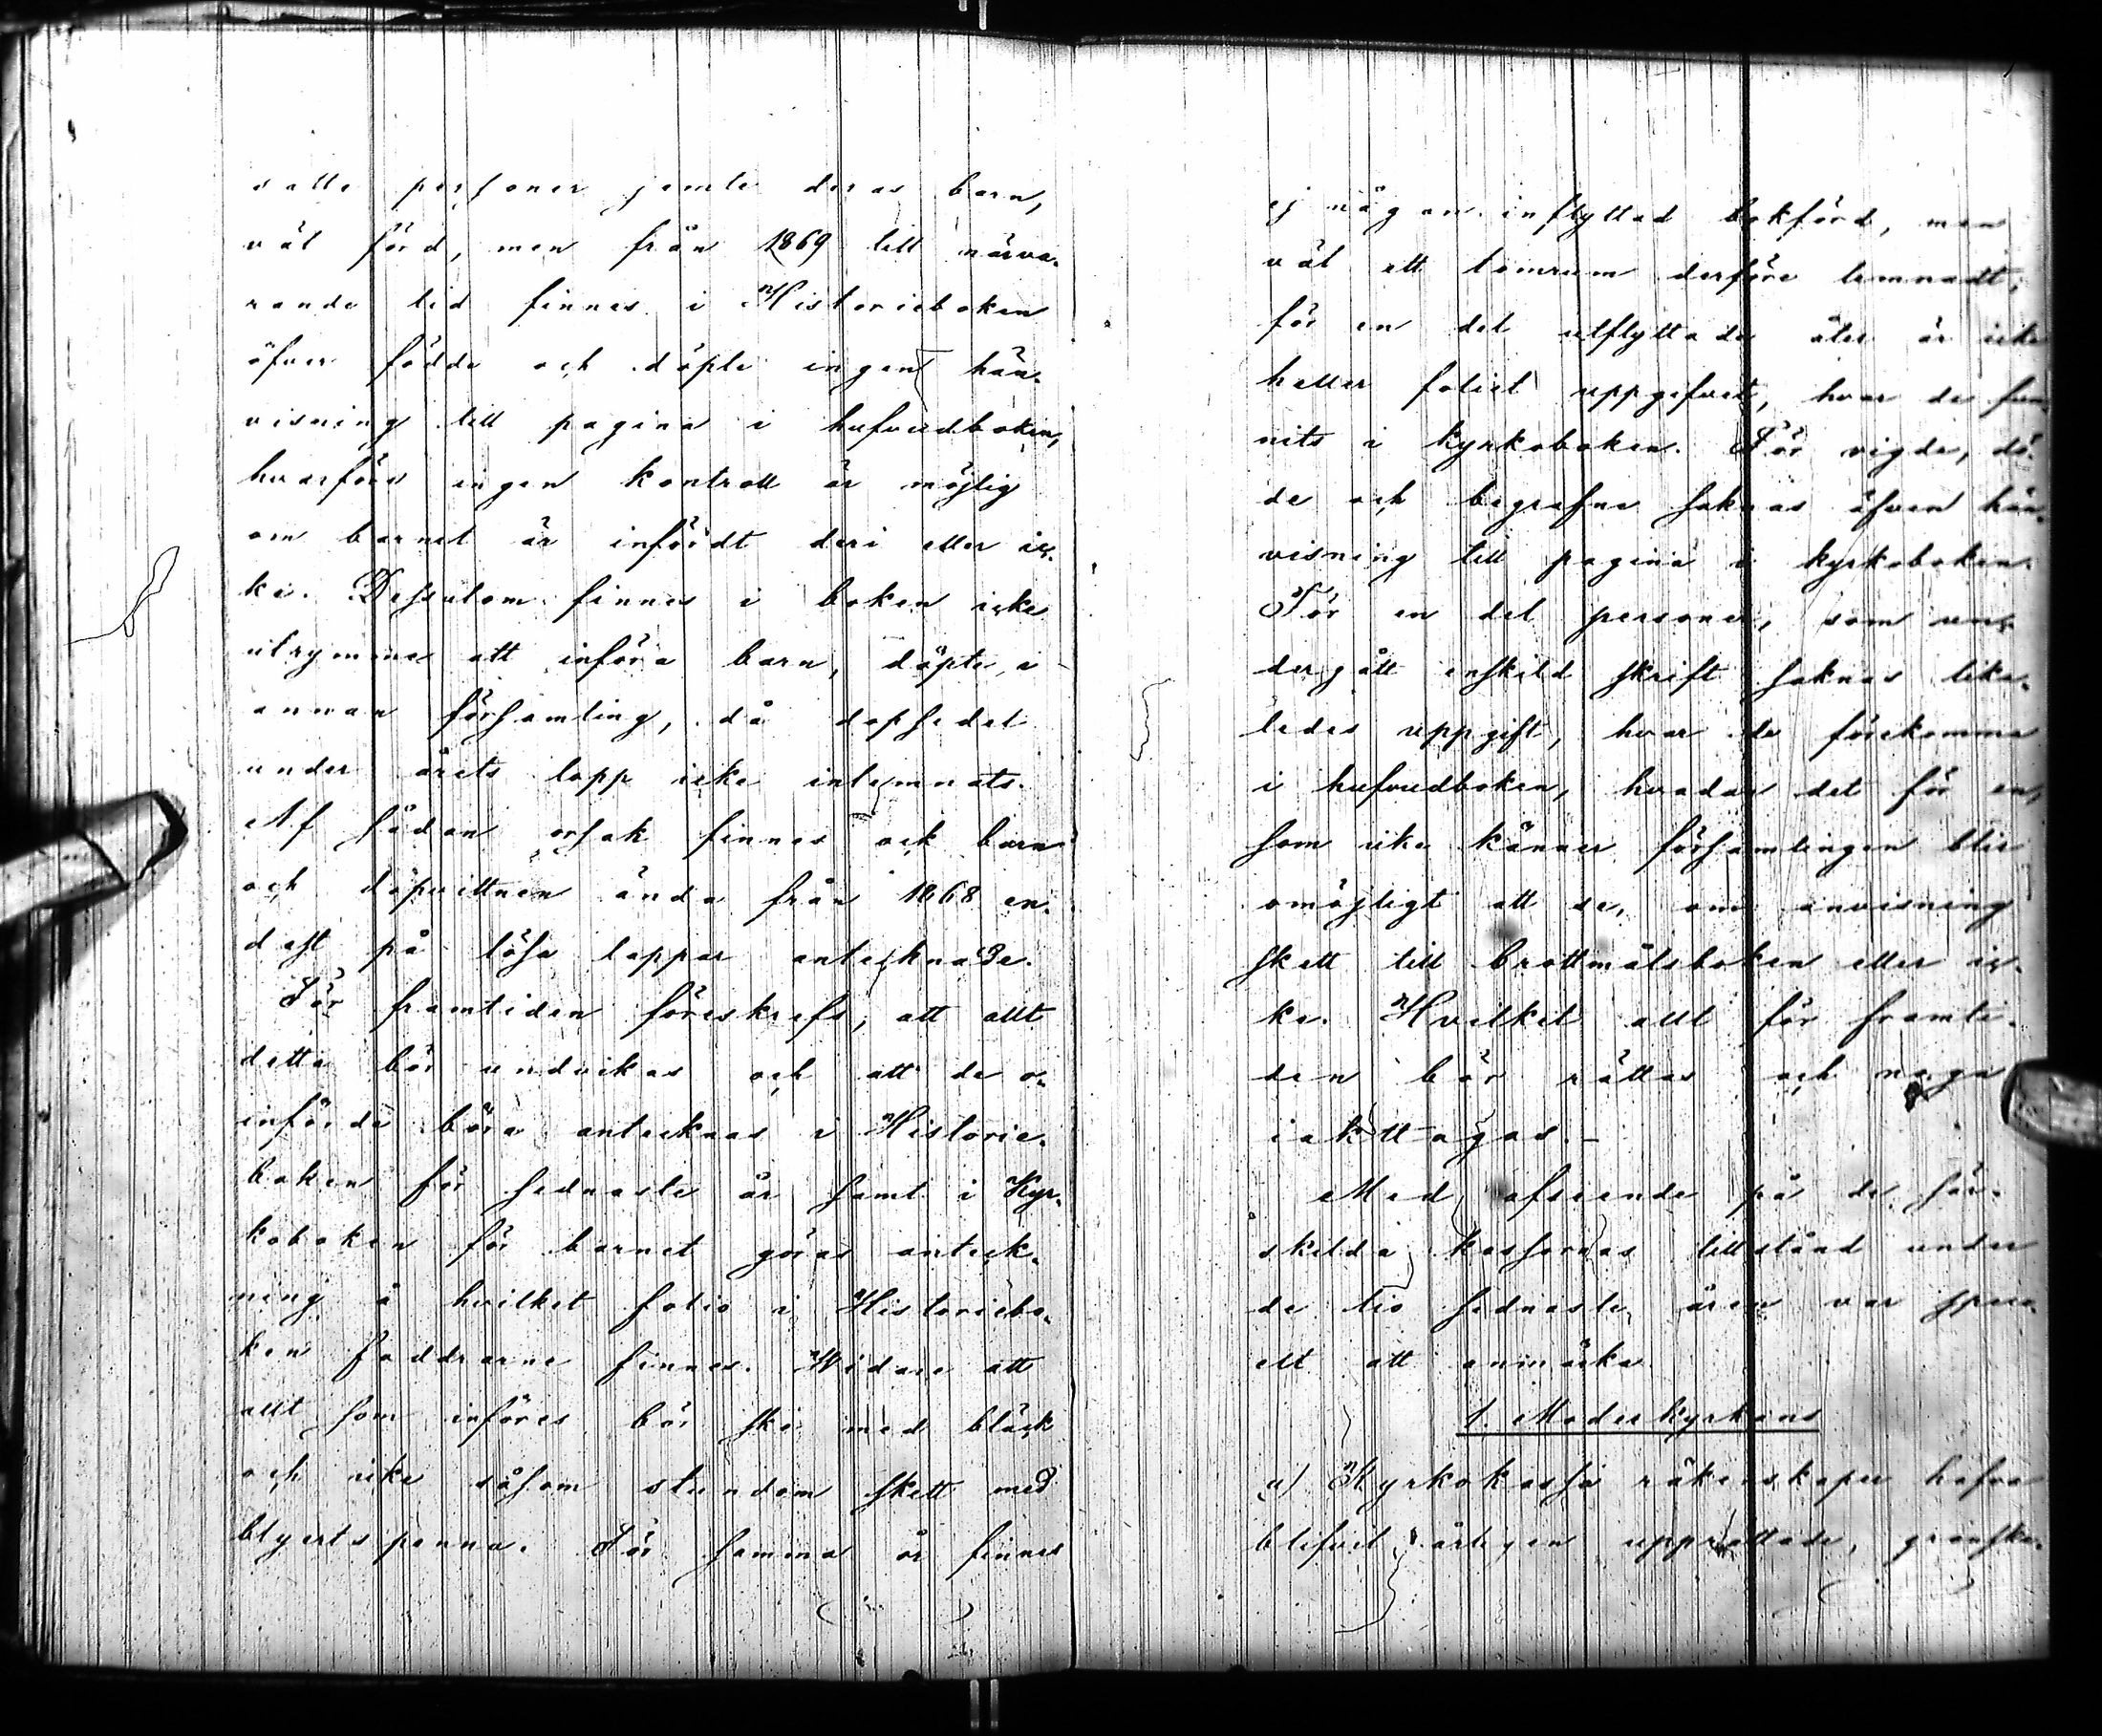 satte personer jemte deras barn,
väl förd, men från 1869 till närva-
rande tid finnes i Historieboken
öfver födde och döpte ingen hän-
visning till pagina i hufvudboken,
hvarföre ingen kontroll är möjlig
om barnet är infördt deri eller ic-
ke. Dessutom finnes i boken icke
utrymme att införa barn, döpte i
annan församling, då dopsedel
under årets lopp icke inlemnats.
Af sådan orsak finnes ock barn
och dopvittnen ända från 1868 en-
dast på lösa lappar antecknade.
För framtiden föreskrefs, att allt
detta bör undvikas och att de o-
införde böra antecknas i Historie-
boken för sednaste år samt i Kyr-
koboken för barnet göras anteck-
ning å hvilket folio i Historiebo-
ken faddrarne finnes. Widare att
allt som införes bör ske med bläck
och icke såsom stundom skett med
blyertspenna. För samma år finnes
ej någon inflyttad bokförd, men
väl ett tomrum derföre lemnadt;
för en del utflyttade åter är icke
heller foliet uppgifvet, hvar de fun-
nits i kyrkoboken. För vigde, dö-
de och begrafne saknas äfven hän-
visning till pagina i kyrkoboken.
För en del personer, som un-
dergått enskild skrift saknas like-
ledes uppgift, hvar de förekomma
i hufvudboken, hvadan det för en,
som icke känner församlingen blir
omöjligt att se, om anvisning
skett till brottmålsboken eller ic-
ke. Hvilket allt för framti-
den bör rättas och noga
iakttagas.-
Med afseende på de sär-
skilda kassornas tillstånd under
de tio sednaste åren var speci-
elt att anmärka
1. Moderkyrkans
a) Kyrkokassa räkenskaper hafva
blifvit årligen upprättade, granska-